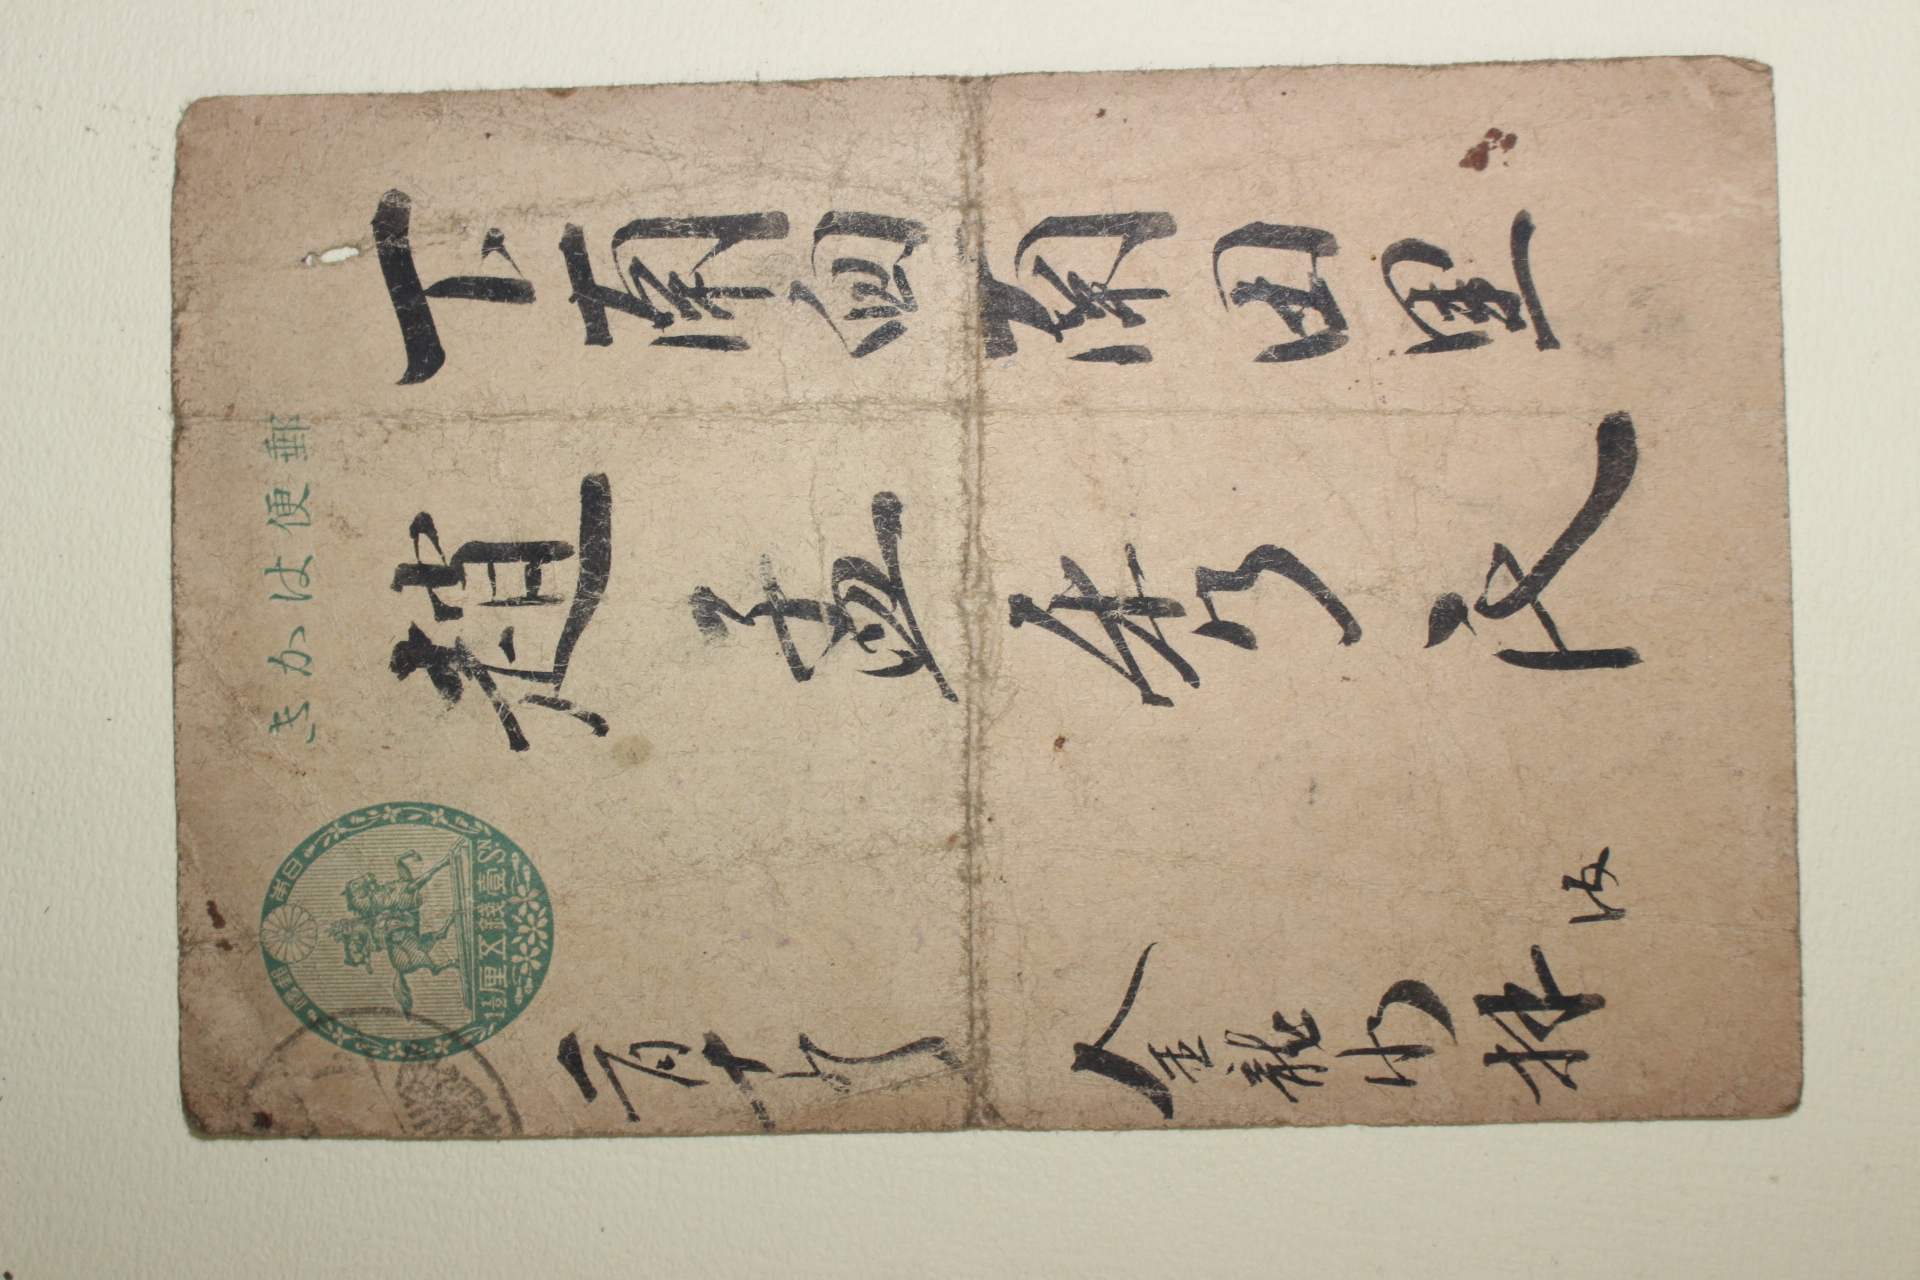 郵便はかき
日本郵便
壹錢五厘
1½ SN
下南面南田里
趙孟秀氏
二月十
金龍水